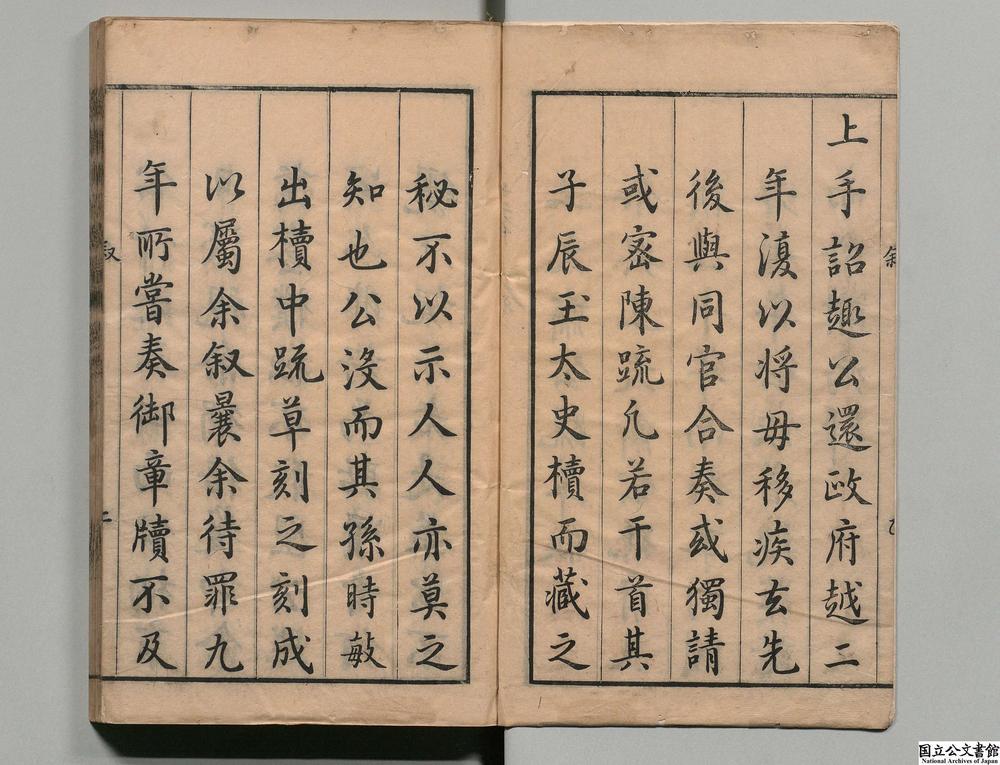 上手詔趣公還政府越二
年復以将毋移疾去先
後與同官合奏或獨請
或密陳䟽凢若干首其
子辰玉太史櫝而藏之
秘不以示人人亦莫之
知也公没而其孫時敏
出櫝中䟽草刻之刻成
以屬余叙曩余待罪九
年所嘗奏御章牘不及
叙
二
国立公文書館
National Archives of Japan